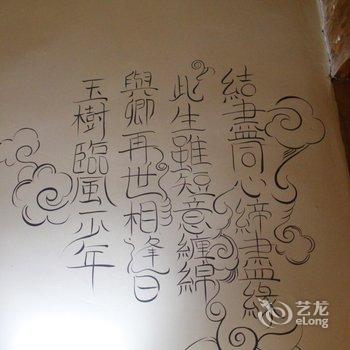 結盡同心締盡緣
此生雖短意纏綿
與卿再世相逢日
玉樹臨風一少年
艺龙
eLong